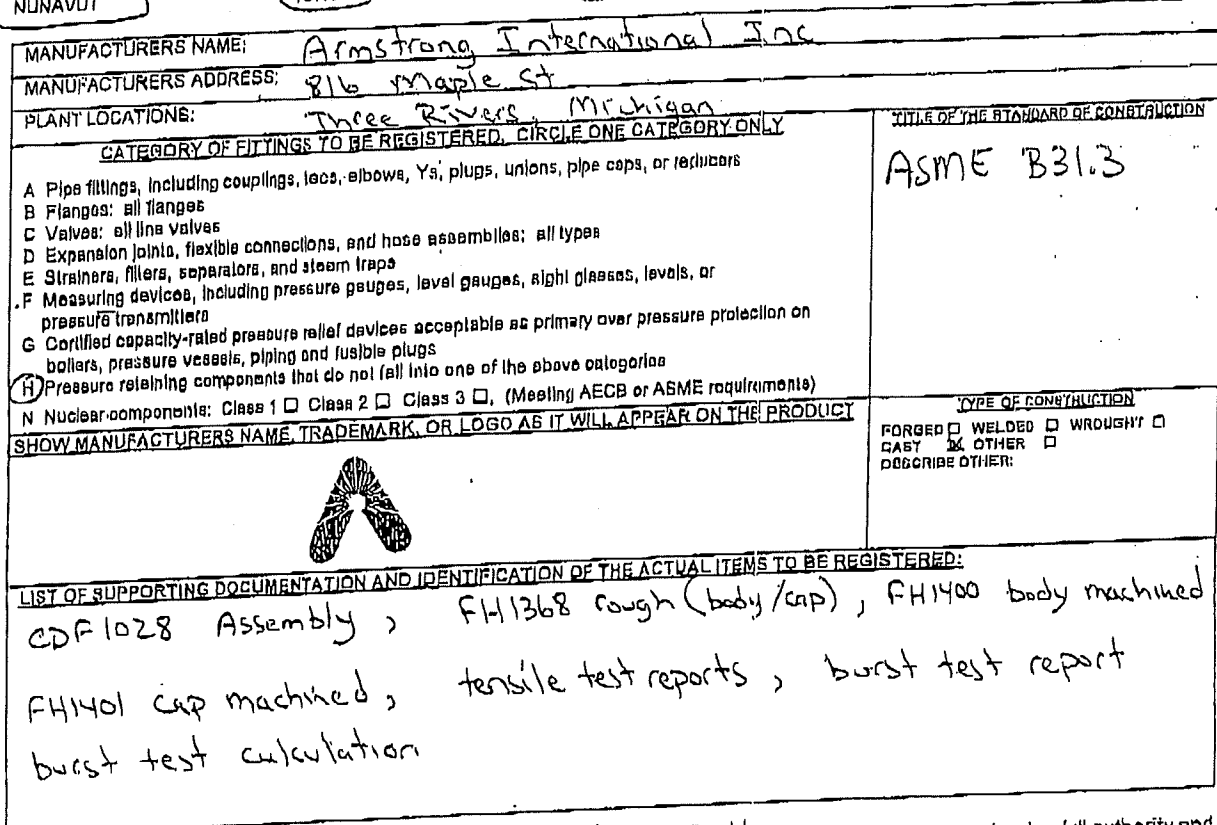 NUNAVUT
MANUFACTURERS NAME: Armstrong International Inc
MANUFACTURERS ADDRESS: 816 Maple St
PLANT LOCATIONS: Three Rivers, Michigan
CATEGORY OF FITTINGS TO BE REGISTERED, CIRCLE ONE CATEGORY ONLY
A Pipe fittings, including couplings, tees, elbows, Ys, plugs, unions, pipe caps, or reducers
B Flanges: all flanges
C Valves: all line valves
D Expansion joints, flexible connections, and hose assemblies; all types
E Strainers, filters, separators, and steam traps
F Measuring devices, including pressure gauges, level gauges, sight glasses, levels, or
pressure transmitters
G Certified capacity-rated pressure relief devices acceptable as primary over pressure protection on
boilers, pressure vessels, piping and fusible plugs
H Pressure retaining components that do not fall into one of the above categories
N Nuclear components: Class 1 ☐ Class 2 ☐ Class 3 ☐, (Meeting AECB or ASME requirements)
TITLE OF THE STANDARD OF CONSTRUCTION
ASME B31.3
SHOW MANUFACTURERS NAME, TRADEMARK, OR LOGO AS IT WILL APPEAR ON THE PRODUCT
TYPE OF CONSTRUCTION
FORGED ☐ WELDED ☐ WROUGHT ☐
CAST ☒ OTHER ☐
DESCRIBE OTHER:
LIST OF SUPPORTING DOCUMENTATION AND IDENTIFICATION OF THE ACTUAL ITEMS TO BE REGISTERED:
CDF1028 Assembly, FH1368 rough (body/cap), FH1400 body machined
FH1401 cap machined, tensile test reports, burst test report
burst test calculation
full authority and